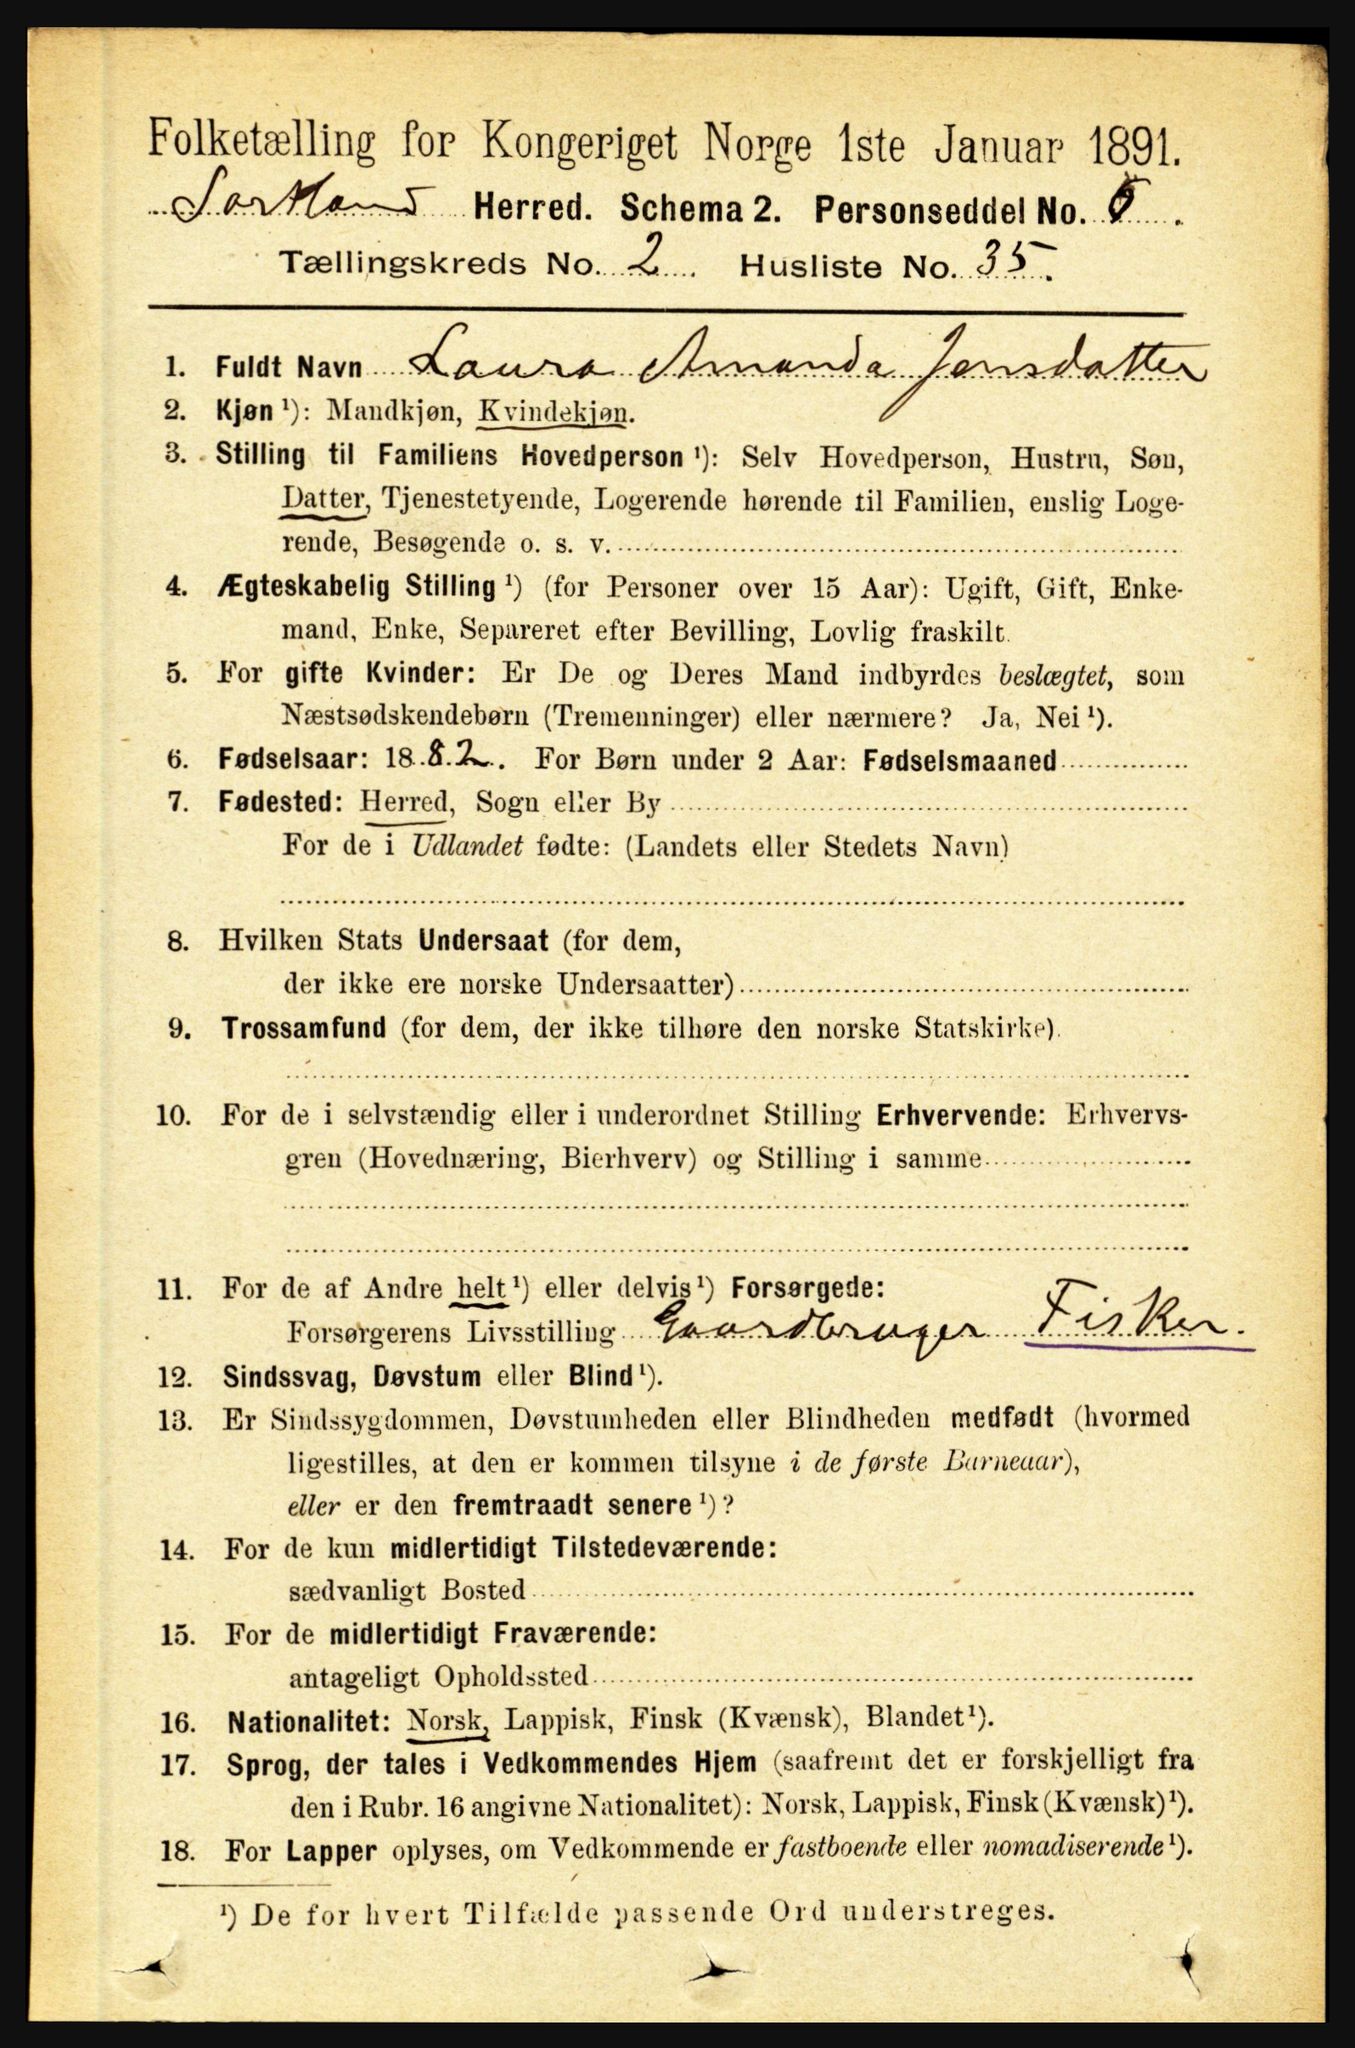 Folketælling for Kongeriget Norge 1ste Januar 1891.
Sortland Herred. Schema 2. Personseddel No. .
Tællingskreds No. 2. Husliste No. 35.
1. Fuldt Navn Laura Amanda Jensdatter
2. Kjøn¹): Mandkjøn, Kvindekjøn.
3. Stilling til Familiens Hovedperson¹): Selv Hovedperson, Hustru, Søn,
Datter, Tjenestetyende, Logerende hørende til Familien, enslig Loge-
rende, Besøgende o. s. v.
4. Ægteskabelig Stilling¹) (for Personer over 15 Aar): Ugift, Gift, Enke-
mand, Enke, Separeret efter Bevilling, Lovlig fraskilt.
5. For gifte Kvinder: Er De og Deres Mand indbyrdes beslægtet, som
Næstsødskendebørn (Tremenninger) eller nærmere? Ja, Nei¹).
6. Fødselsaar: 1882. For Børn under 2 Aar: Fødselsmaaned
7. Fødested: Herred, Sogn eller By
For de i Udlandet fødte: (Landets eller Stedets Navn)
8. Hvilken Stats Undersaat (for dem,
der ikke ere norske Undersaatter)
9. Trossamfund (for dem, der ikke tilhøre den norske Statskirke).
10. For de i selvstændig eller i underordnet Stilling Erhvervende: Erhvervs-
gren (Hovednæring, Bierhverv) og Stilling i samme
11. For de af Andre helt¹) eller delvis¹) Forsørgede:
Forsørgerens Livsstilling Gaardbruger Fisker.
12. Sindssvag, Døvstum eller Blind¹).
13. Er Sindssygdommen, Døvstumheden eller Blindheden medfødt (hvormed
ligestilles, at den er kommen tilsyne i de første Barneaar),
eller er den fremtraadt senere¹)?
14. For de kun midlertidigt Tilstedeværende:
sædvanligt Bosted
15. For de midlertidigt Fraværende:
antageligt Opholdssted
16. Nationalitet: Norsk, Lappisk, Finsk (Kvænsk), Blandet¹).
17. Sprog, der tales i Vedkommendes Hjem (saafremt det er forskjelligt fra
den i Rubr. 16 angivne Nationalitet): Norsk, Lappisk, Finsk (Kvænsk)¹).
18. For Lapper oplyses, om Vedkommende er fastboende eller nomadiserende¹).
¹) De for hvert Tilfælde passende Ord understreges.